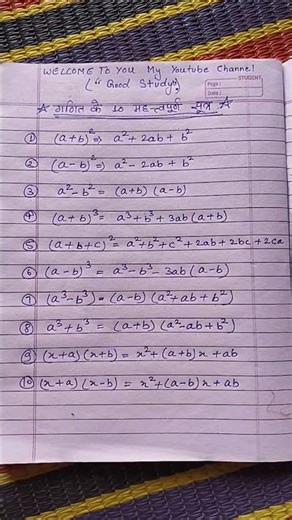 WELCOME To You My Youtube Channel
STUDENT
("Good Study")
Page :
Date :
☆ गणित के 10 महत्वपूर्ण सूत्र ☆
① (a+b)² ⇒ a²+2ab+b²
② (a-b)² ⇒ a²-2ab+b²
③ a²-b² = (a+b) (a-b)
④ (a+b)³ = a³+b³+3ab(a+b)
⑤ (a+b+c)² = a²+b²+c²+2ab+2bc+2ca
⑥ (a-b)³ = a³-b³-3ab(a-b)
⑦ (a³-b³) = (a-b) (a²+ab+b²)
⑧ a³+b³ = (a+b) (a²-ab+b²)
⑨ (x+a) (x+b) = x²+(a+b)x+ab
⑩ (x+a) (x-b) = x²+(a-b)x+ab